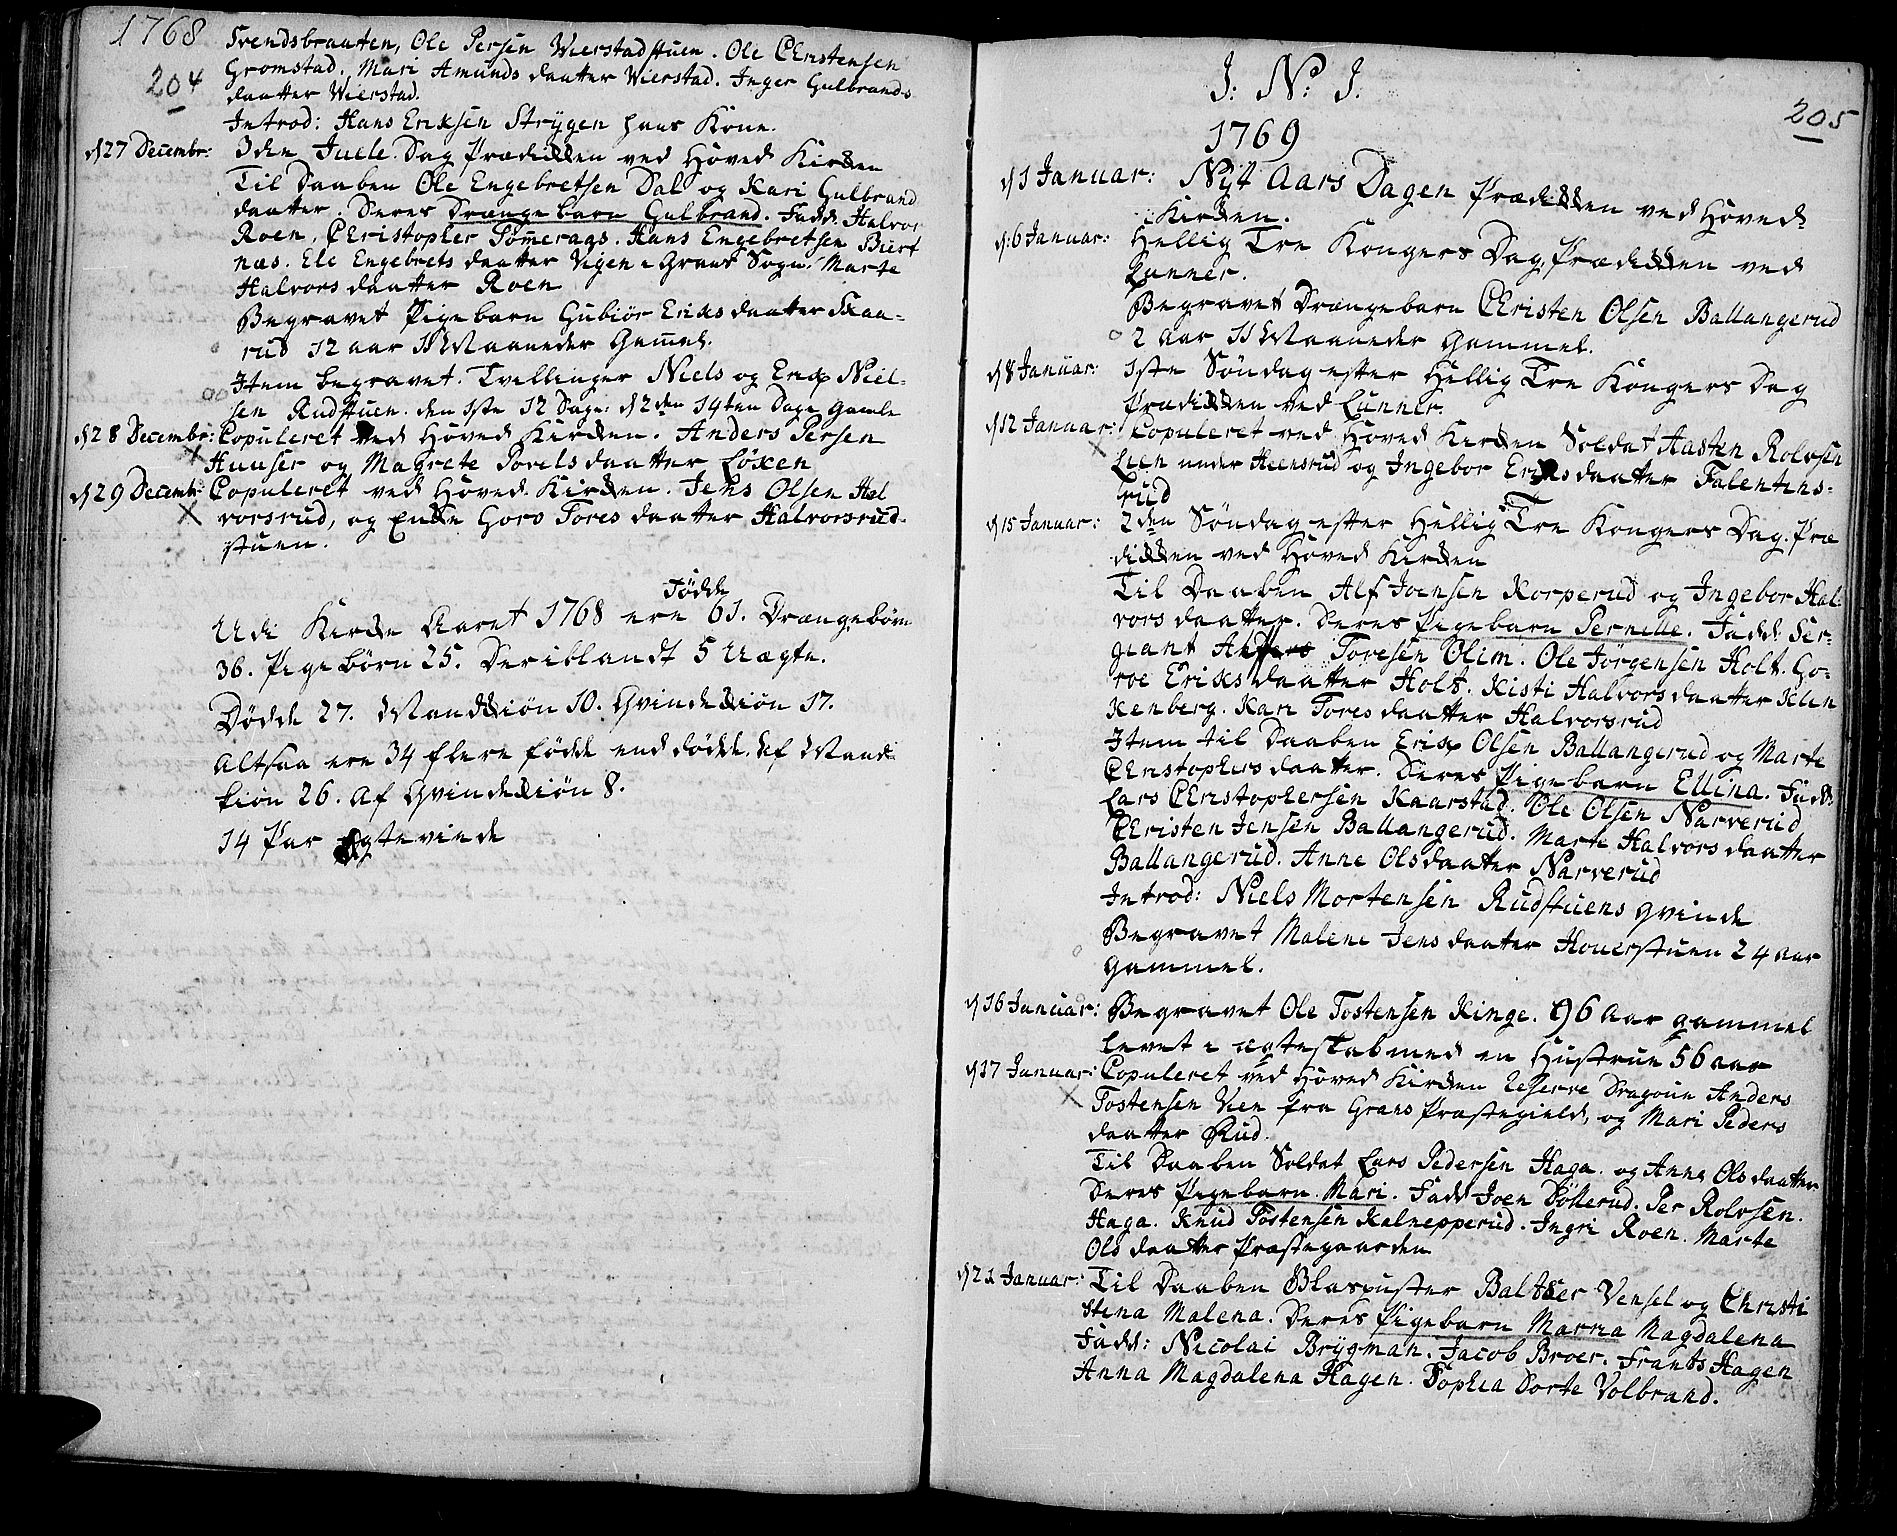 1768
204
Svendsbraaten, Ole Persen Wierstadstuen. Ole Christensen
Gromstad. Mari Amunds daatter Wierstad. Inger Gulbrands
daatter Wierstad.
Introd: Hans Eriksen Strygen hans Kone.
d 27 Decembr: 3den Juele Dag Prædiken ved Hoved Kirken
Til Daaben Ole Engebretsen Dal og Kari Gulbrand
daatter. Deres Drængebarn Gulbrand. Fadd: Halvor
Roen, Christopher Sømerags. Hans Engebretsen Biert
næs. Ele Engebrets daatter Vigen i Grans Sogn. Marte
Halvors daatter Roen
Begravet Pigebarn Gubiør Eriks daatter Skaa-
rud 12 aar 11 Maaneder Gamel.
Item begravet. Tvillinger Niels og Erich Niel-
sen Rudstuen. den 1ste 12 Dage: d 2den 14ten Dage Gamle
d 28 Decembr: Copuleret ved Hoved Kirken. Anders Persen
Huuser og Magrete Povels daatter Løken
d 29 Decembr Copuleret ved Hoved Kirken. Jens Olsen Hal
vorsrud, og Enke Goro Tores daatter Halvorsrud-
stuen.
Fødde
Udi Kirke Aaret 1768 ere 61. Drængebørn
36. Pigebørn 25. Deriblandt 5 Uægte.
Dødde 27. Mandkiøn 10. Qvindekiøn 17.
Altsaa ere 34 flere fødde end dødde. Af Mand-
kiøn 26. Af Qvindekiøn 8.
14 Par Egteviede
205
J: N: J.
1769
d 1 Januar: Nyt Aars Dagen Prædiken ved Hoved
Kirken.
d: 6 Januar: Hellig Tre Kongers Dag. Prædiken ved
Lunner.
Begravet Drængebarn Christen Olsen Ballangerud
2 aar 11 Maaneder gammel.
d 8 Januar: 1ste Søndag efter Hellig Tre Kongers Dag
Prædiken ved Lunner.
d 12 Januar: Copuleret ved Hoved Kirken Soldat Aasten Rolvsen
Lien under Heensrud og Ingebor Eriksdaatter Falentins-
rud
d 15 Januar: 2den Søndag efter Hellig Tre Kongers Dag. Præ
diken ved Hoved Kirken
Til Daaben Alf Joensen Korperud og Ingebor Hal-
vors daatter. Deres Pigebarn Pernille. Fadd: Ser-
giant Anders Toresen Olim. Ole Jørgensen Holt. Go-
roe Eriks daatter Holt. Kisti Halvors daatter Klin
kenberg. Kari Tores daatter Halvorsrud
Item til Daaben Erich Olsen Ballangerud og Marte
Christophersdaatter. Deres Pigebarn Ellina. Fadd:
Lars Christophersen Kaarstad. Ole Olsen Narverud
Christen Jensen Ballangerud. Marte Halvors daatter
Ballangerud. Anne Olsdaatter Narverud
Introd: Niels Mortensen Rudstuens qvinde
Begravet Malene Jens daatter Houerstuen 24 aar
gammel.
d 16 Januar: Begravet Ole Tostensen Kinge. 96 Aar gammel
levet i ægteskab med en Hustrue 56 aar
d 17 Januar: Copuleret ved Hoved Kirken Reserve Dragoun Anders
Tostensen Vien fra Grans Præstegield, og Mari Peders
daatter Rud.
Til Daaben Soldat Lars Pedersen Haga. og Anne Olsdaatter
Deres Pigebarn Mari. Fadd Joen Døllerud. Per Rolvsen.
Haga. Knud Tostensen Kalnepperud. Ingri Roen. Marte
Ols daatter Præstegaarden
d 21 Januar: Til Daaben Blaspuster Baltser Vensel og Christi
stina Malena. Deres Pigebarn Maria Magdalena
Fadd: Nicolai Brygman. Jacob Broer. Frants Hagen
Anna Magdalena Hagen. Sophia Dorte Volbrand.